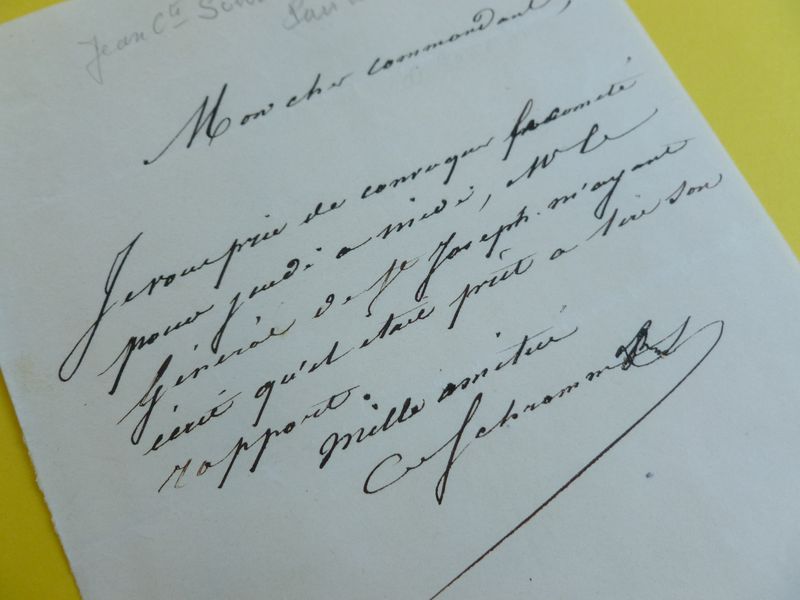 Jean Cte
Mon cher commandant,
Je vous prie de convoquer le comité
pour jeudi a midi, Mr le
Général de St Joseph m'ayant
écrit qu'il etait prêt a lire son
rapport.
Mille amitiés
Cte Schramm